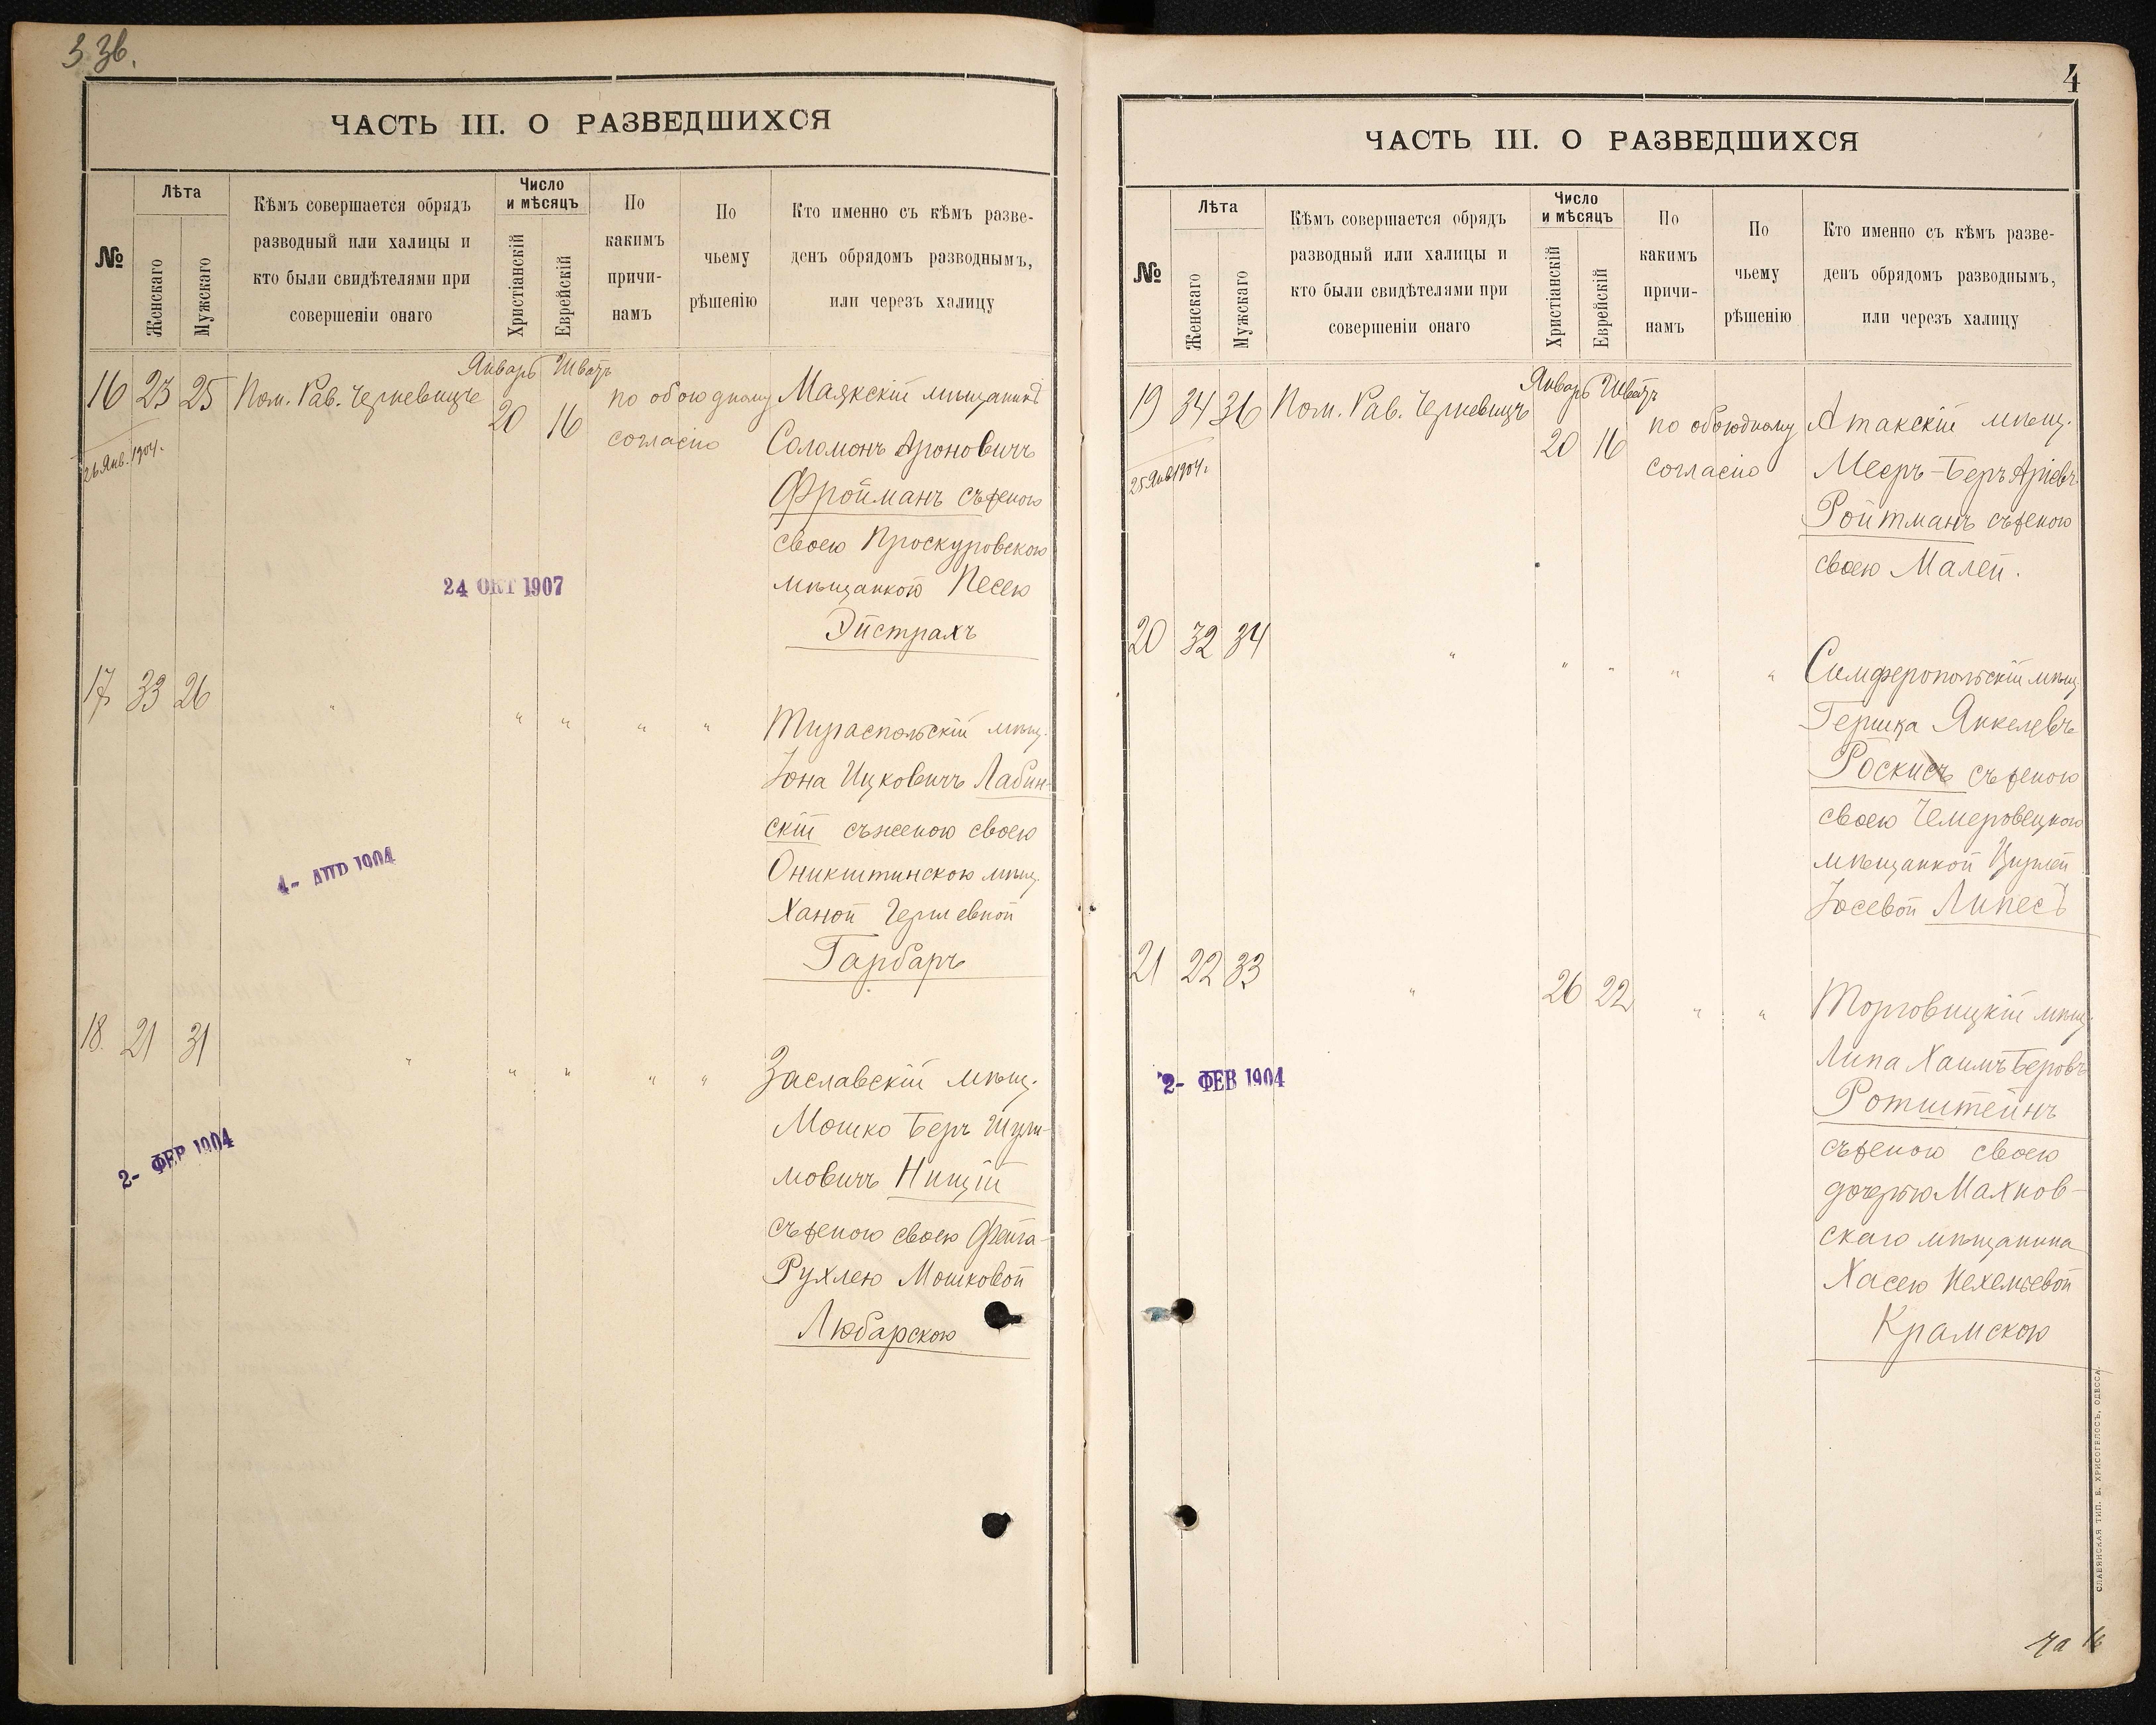 3 зв.
ЧАСТЬ III. О РАЗВЕДШИХСЯ
№
Лѣта
Женскаго
Мужскаго
Кѣмъ совершается обрядъ
разводный или халицы и
кто были свидѣтелями при
совершеніи онаго
Число
и мѣсяцъ
Христіанскій
Еврейскій
По
какимъ
причи-
намъ
По
чьему
рѣшенію
Кто именно съ кѣмъ разве-
денъ обрядомъ разводнымъ,
или черезъ халицу
Январь Шватъ
16 23 25 Пом. Рав. Черневицъ 20 16 по обоюдному Маякскій мѣщанинъ
26 Янв. 1904.
согласію Соломонъ Ароновичъ
Фройманъ съ женою
своею Проскуровскою
24 ОКТ 1907
мѣщанкою Песею
Эйстрахъ
17 33 26 " " " " " Тираспольскій мѣщ.
Іона Ицковичъ Лабин-
скій съ женою своею
4- АПР 1904
Оникштинскою мѣщ.
Ханой Гершевной
Гарбаръ
18. 21 31 " " " " " Заславскій мѣщ.
Мошко Беръ Шули-
2- ФЕВ 1904
мовичъ Нищій
съ женою своею Фейга-
Рухлею Мошковой
Любарскою
4
ЧАСТЬ III. О РАЗВЕДШИХСЯ
№
Лѣта
Женскаго
Мужскаго
Кѣмъ совершается обрядъ
разводный или халицы и
кто были свидѣтелями при
совершеніи онаго
Число
и мѣсяцъ
Христіанскій
Еврейскій
По
какимъ
причи-
намъ
По
чьему
рѣшенію
Кто именно съ кѣмъ разве-
денъ обрядомъ разводнымъ,
или черезъ халицу
Январь Шватъ
19 34 36 Пом. Рав. Черневицъ 20 16 по обоюдному Атакскій мѣщ.
25 Янв 1904.
согласію Мееръ-Беръ Аріевъ
Ройтманъ съ женою
своею Малей.
20 32 34 " " " " " Симферопольскій мѣщ.
Гершка Янкелевъ
Роскисъ съ женою
своею Чемеровецкою
мѣщанкой Цирлей
Іосевой Липесъ
21 22 33 " 26 22 " " Торговицкій мѣщ.
Липа Хаимъ Беровъ
2- ФЕВ 1904
Ротштейнъ
съ женою своею
дочерью Махнов-
скаго мѣщанина
Хасею Нехемьевой
Крамскою
СЛАВЯНСКАЯ ТИП. Е. ХРИСОГЕЛОСЪ, ОДЕССА.